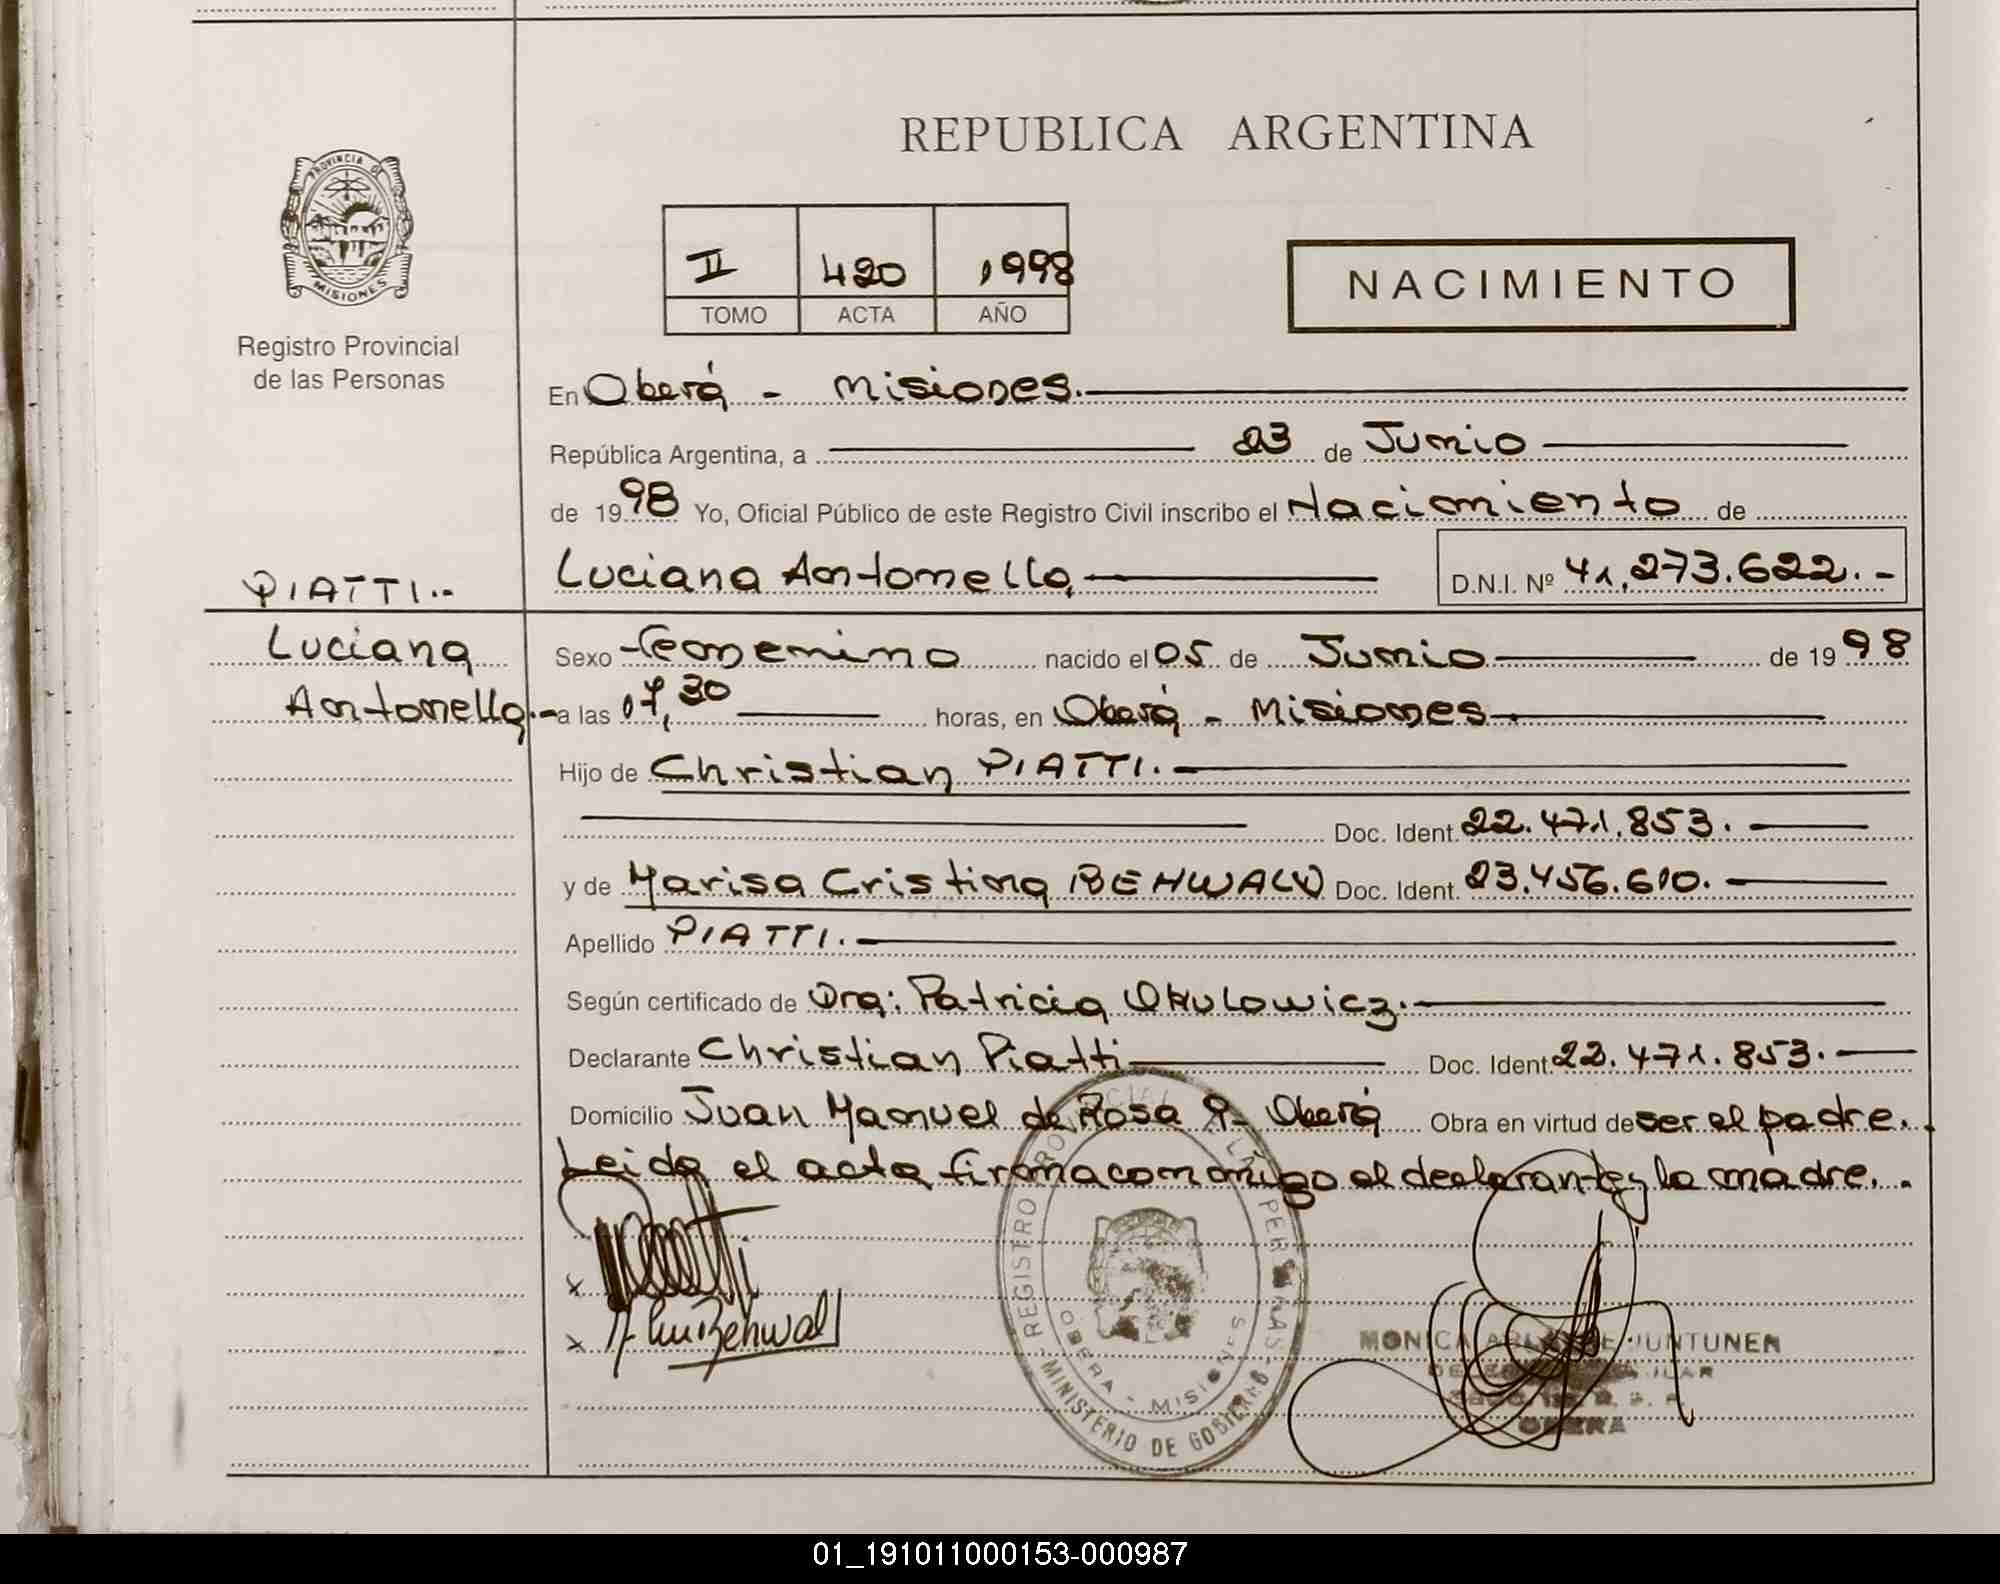 REPUBLICA ARGENTINA
PROVINCIA DE
MISIONES
II 420 1998
TOMO ACTA AÑO
NACIMIENTO
Registro Provincial
de las Personas
En Oberá - Misiones.
República Argentina, a 23 de Junio
de 1998 Yo, Oficial Público de este Registro Civil inscribo el Nacimiento de
Luciana Antonella. D.N.I. Nº 41.273.622.-
PIATTI.-
Luciana
Antonella.-
Sexo femenino nacido el 05 de Junio de 1998
a las 17,30 horas, en Oberá - Misiones
Hijo de Christian PIATTI.
Doc. Ident. 22.471.853.
y de Marisa Cristina BEHWALD Doc. Ident. 23.456.610.
Apellido PIATTI.
Según certificado de Dra: Patricia Okulowicz.
Declarante Christian Piatti Doc. Ident. 22.471.853.
Domicilio Juan Manuel de Rosa Oberá Obra en virtud de ser el padre.
Leida el acta firma conmigo el declarante y la madre.
x
x Behwald
REGISTRO PROVINCIAL DE LAS PERSONAS
OBERA - MISIONES
MINISTERIO DE GOBIERNO
MONICA JUNTUNEN
OBERA
01_191011000153-000987